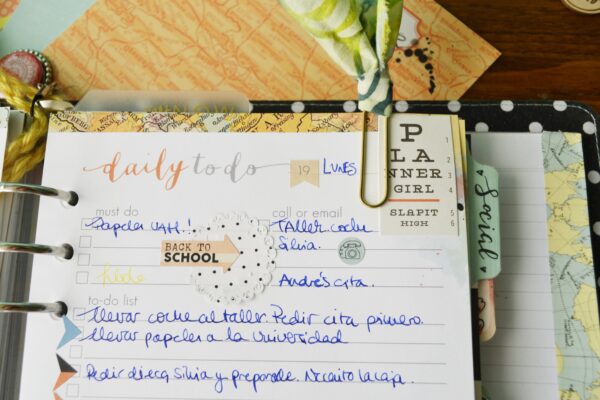 daily to do
19 LUNES
PLANNER
GIRL
SLAPIT
HIGH
1
2
3
4
5
6
Social
must do
call or email
Papeles UAH!
TAller coche
Silvia.
BACK TO
SCHOOL
Andrés cita.
to-do list
Llevar coche al taller. Pedir cita primero.
llevar papeles a la Universidad
Pedir direcc, Silvia y preparade. Necesito la caja.